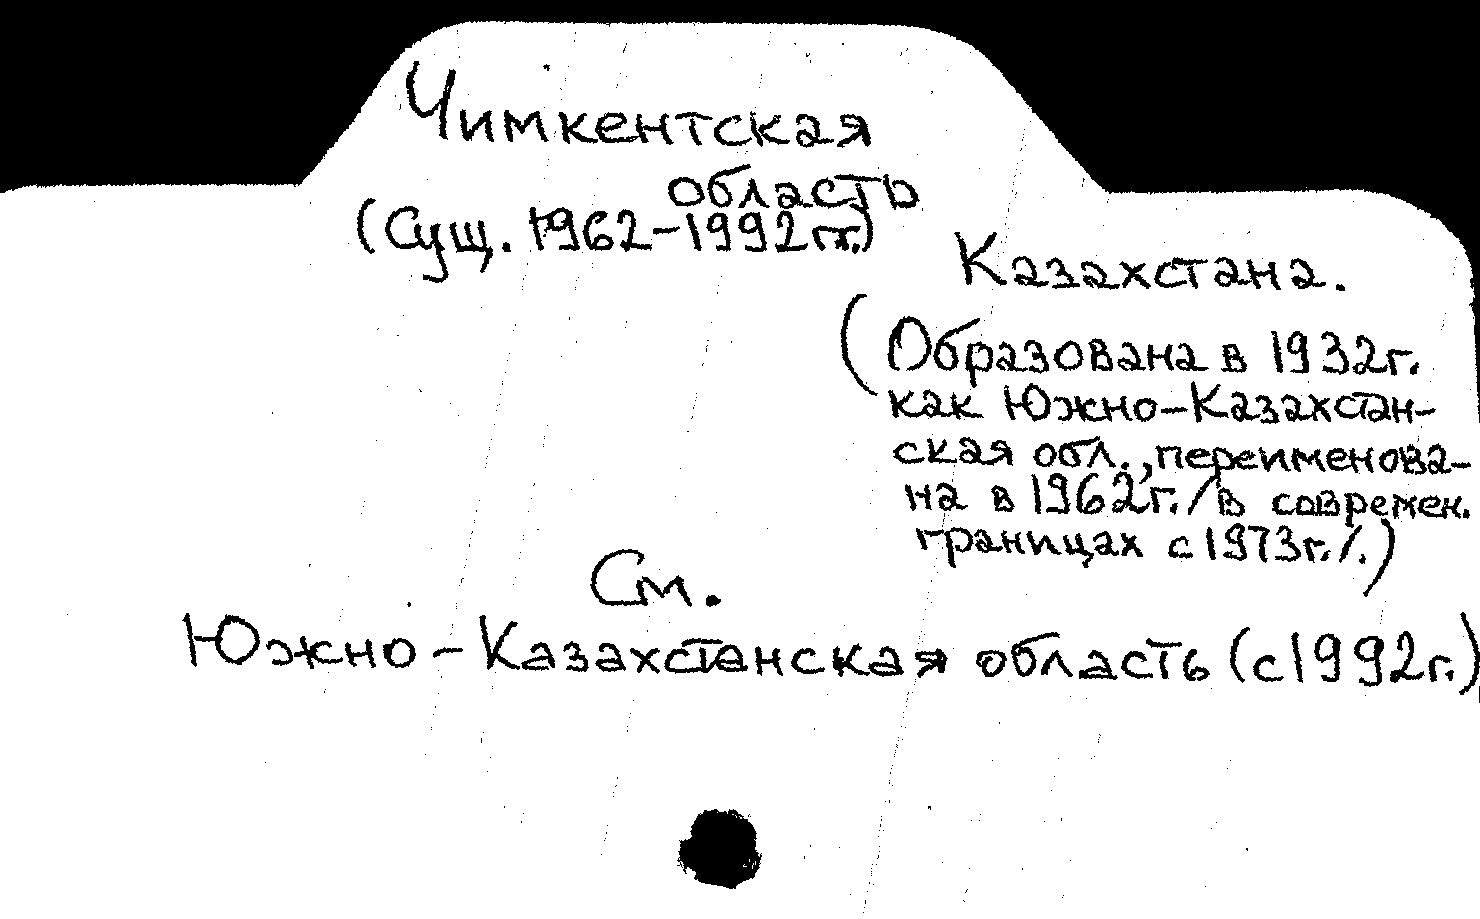 Чимкентская
область
(Сущ. 1962-1992гг.)
Казахстана.
(Образована в 1932г.
как Южно-Казахстан-
ская обл., переименова-
на в 1962г. /в современ.
границах с 1973г./.)
См.
Южно-Казахстанская область (с 1992г.)